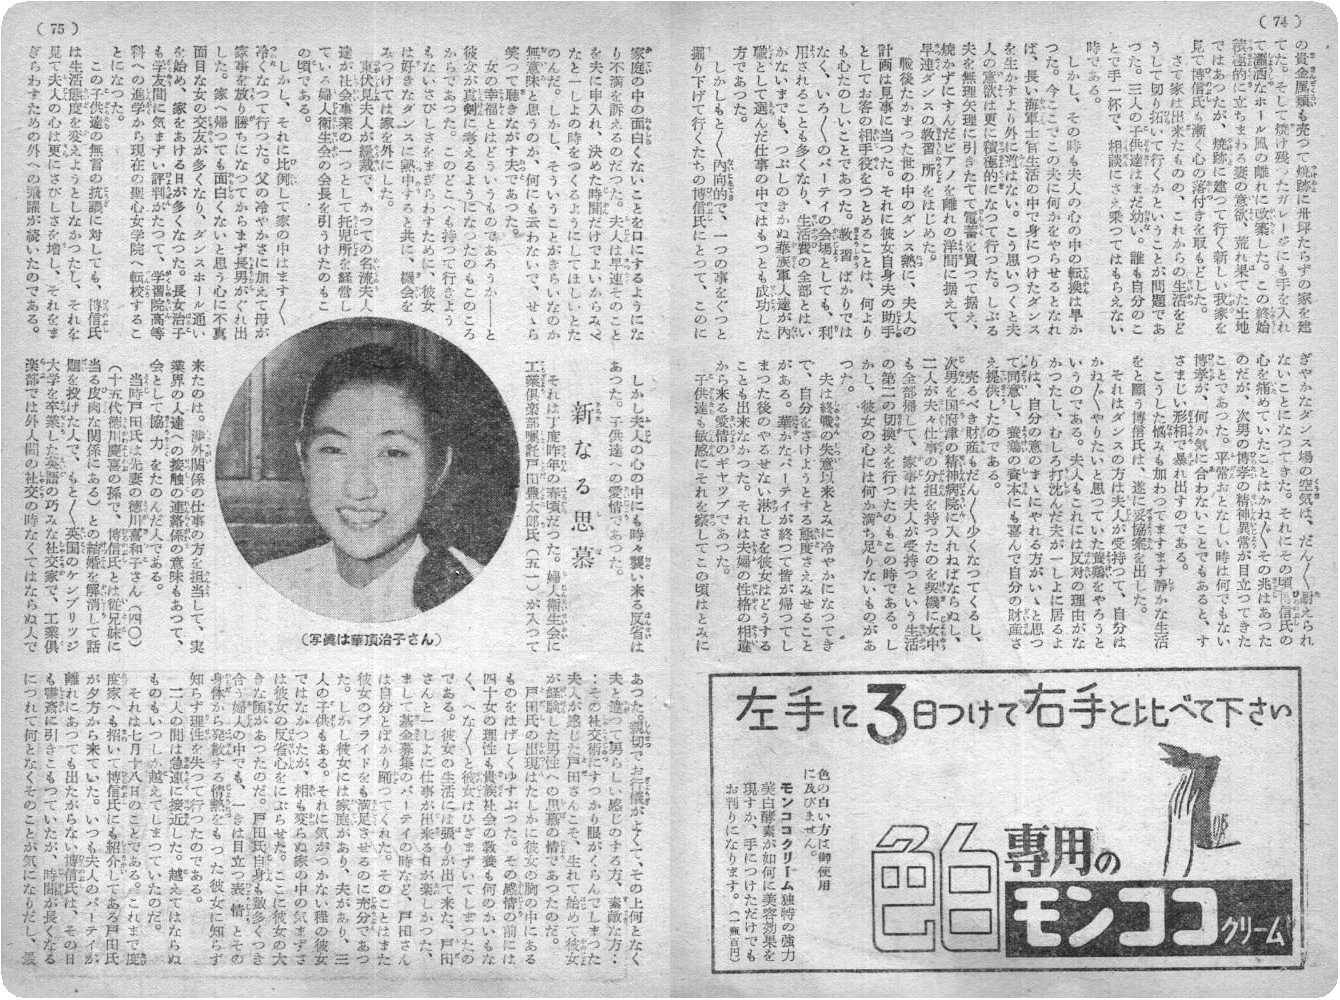 (74)
の貴金屬類も売つて焼跡に卅坪たらずの家を建
て瀟洒なホール風の離れに改築した。この終始
積極的に立ちまわる妻の意欲、荒れ果てた土地
ではあつたが、焼跡に建つて行く新しい我家を
見て博信氏も漸く心の落付きを取もどした。
さて家は出来たものの、これからの生活をど
うして切り拓いて行くかということが問題であ
つた。三人の子供達はまだ幼い。誰も自分のこ
とで手一杯で、相談にさえ乗つてはもらえない
時である。
しかし、その時も夫人の心の中の転換は早か
つた。今ここでこの夫に何かをやらせるとなれ
ば、長い海軍士官生活の中で身につけたダンス
を生かすより外に道はない。こう思いつくと夫
人の意欲は更に積極的になつて行つた。しぶる
夫を無理矢理に引きたてて電蓄を買つて揃え、
焼かずにすんだピアノを離れの洋間に据えて、
早速ダンスの教習所をはじめた。
戰後たかまつた世の中のダンス熱に、夫人の
計画は見事に当つた。それに彼女自身夫の助手
としてお客の相手役をつとめることは、何より
も心たのしいことであつた。教習ばかりでは
なく、いろ〳〵のパーテイの会場としても、利
用されることも多くなり、生活費の全部とはい
かないまでも、つぶしのきかぬ華族軍人達が内
職として選んだ仕事の中ではもつとも成功した
方であつた。
しかしもと〳〵内向的で、一つの事をぐつと
掘り下げて行くたちの博信氏にとつて、このに
ぎやかなダンス場の空気は、だん〳〵耐えられ
ないことになつてきた。それにその頃、博信氏の
心を痛めていたことはかね〴〵その兆はあつた
のだが、次男の博孝の精神異常が目立つてきた
ことであつた。平常おとなしい時は何でもない
博孝が、何か気に合わないことでもあると、す
さまじい形相で暴れ出すのである。
こうした悩みも加わつてますます静かな生活
をと願う博信氏は、遂に妥協案を出した。
それはダンスの方は夫人が受持つて、自分は
かね〴〵やりたいと思つていた養鶏をやろうと
いうのである。夫人もこれには反対の理由がな
かつたし、むしろ打沈んだ夫が一しよに居るよ
りは、自分の意のまゝにやれる方がいゝと思つ
て同意し、養鶏の資本にも喜んで自分の財産さ
え提供したのである。
売るべき財産もだん〳〵少くなつてくるし、
次男を国府津の精神病院に入れねばならぬし、
二人が夫々仕事の分担を持つたのを契機に女中
も全部帰して、家事は夫人が受持つという生活
の第二の切換えを行つたのもこの時である。し
かし、彼女の心には何か満ち足りないものがあ
つた。
夫は終戰の失意以来とみに冷やかになつてき
て、自分をさけようとする態度さえみせること
がある。華かなパーテイが終つて皆が帰つてし
まつた後のやるせない淋しさを彼女はどうする
ことも出来なかつた。それは夫婦の性格の相違
から来る愛情のギヤツプであつた。
子供達も敏感にそれを察してこの頃はとみに
左手に3日つけて右手と比べて下さい
色白専用の
モンココクリーム
色の白い方は御使用
に及びません。
モンココクリーム独特の強力
美白酵素が如何に美容効果を
現すか、手につけただけでも
お判りになります。(一瓶百円)
(75)
家庭の中の面白くないことを口にするようにな
り不満を訴えるのだつた。夫人は早速そのこと
を夫に申入れ、決めた時間だけでよいからみべ
なと一しよの時をつくるようにしてほしいとた
のんだ。しかし、そういうことがきらいなのか
無意味と思うのか、何にも云わないで、せゝら
笑つて聴きながす夫であつた。
女の幸福とはどういうものであろうか――と
彼女が真剣に考えるようになつたのもこのころ
からであつた。このどこへも持つて行きよう
もないさびしさをまぎらわすために、彼女
は好きなダンスに熱中すると共に、機会を
みつけては家を外にした。
東伏見夫人が総裁で、かつての名流夫人
達が社会事業の一つとして托児所を経営し
ている婦人衞生会の会長を引うけたのもこ
の頃である。
しかし、それに比例して家の中はます〳〵
冷くなつて行つた。父の冷やかさに加えて母が
家事を放り勝ちになつてからまず長男がぐれ出
した。家へ帰つても面白くないと思う心に不真
面目な女の交友が多くなり、ダンスホール通い
を始め、家をあける日が多くなつた。長女治子
も学友間に気まずい評判がたつて、学習院高等
科への進学から現在の聖心女学院へ転校するこ
とになつた。
この子供達の無言の抗議に対しても、博信氏
は生活態度を変えようとしなかつたし、それを
見て夫人の心は更にさびしさを増し、それをま
ぎらわすための外への飛躍が続いたのである。
しかし夫人の心の中にも時々襲い来る反省は
あつた。子供達への愛情であつた。
新なる思慕
それは丁度昨年の春頃だつた。婦人衞生会に
工業倶楽部嘱託戸田豊太郎氏(五一)が入つて
来たのは。渉外関係の仕事の方を担当して、実
業界の人達への接触の連絡係の意味もあつて、
会として協力をたのんだ人である。
当時戸田氏は先妻の徳川喜和子さん(四〇)
(十五代徳川慶喜の孫で、博信氏とは従兄妹に
当る皮肉な関係にある)との結婚を解消して話
題を投げた人で、もと〳〵英国のケンブリツジ
大学を卒業した英語の巧みな社交家で、工業倶
楽部では外人間の社交の時なくてはならぬ人で
(写眞は華頂治子さん)
あつた。親切でお行儀がよくて、その上何となく
夫と違つて男らしい感じのする方、素敵な方‥
‥その社交術にすつかり眼がくらんでしまつた
夫人が感じた戸田さんこそ、生れて始めて彼女
が経験した男性への思慕の情であつたのだ。
戸田氏の出現はたしかに彼女の胸の中にある
ものをはげしくゆすぶつた。その感情の前には
四十女の理性も貴族社会の教養も何のかいもな
く、へな〳〵と彼女はひざまずいてしまつたの
である。彼女の生活には張りが出て来た、戸田
さんと一しよに仕事が出来る日が楽しかつた、
まして基金募集のパーテイの時など、戸田さん
は自分とばかり踊つてくれた。そのことはまた
彼女のプライドをも満足させるのに充分であつ
た。しかし彼女には家庭があり、夫があり、三
人の子供もある。それに気がつかない程の彼女
ではなかつたが、相も変らぬ家の中の気まずさ
は彼女の反省心をにぶらせた。ここに彼女の大
きな強があつたのだ。戸田氏自身も数多くつき
合う婦人の中でも、一きは目立つ表情とその
身体から発散する情熱をもつた彼女に知らず
知らず理性を失つて行つたのである。
二人の間は急速に接近した。越えてはならぬ
ものもいつしか越えてしまつていたのだ。
それは七月十八日のことである。これまで度
度家へも招いて博信氏にも紹介してある戸田氏
が夕方から来ていた。いつも夫人のパーテイが
離れにあつても出たがらない博信氏は、その日
も書斎に引きこもつていたが、時間が長くなる
につれて何となくそのことが気になりだし、最